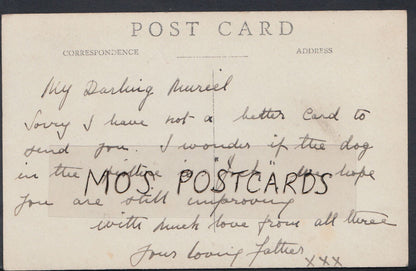 POST CARD
CORRESPONDENCE
ADDRESS
My Darling Muriel
Sorry I have not a better Card to
send you. I wonder if the dog
in the hope
MOS POSTCARDS
you are still improving
with much love from all three
Your loving father
xxx